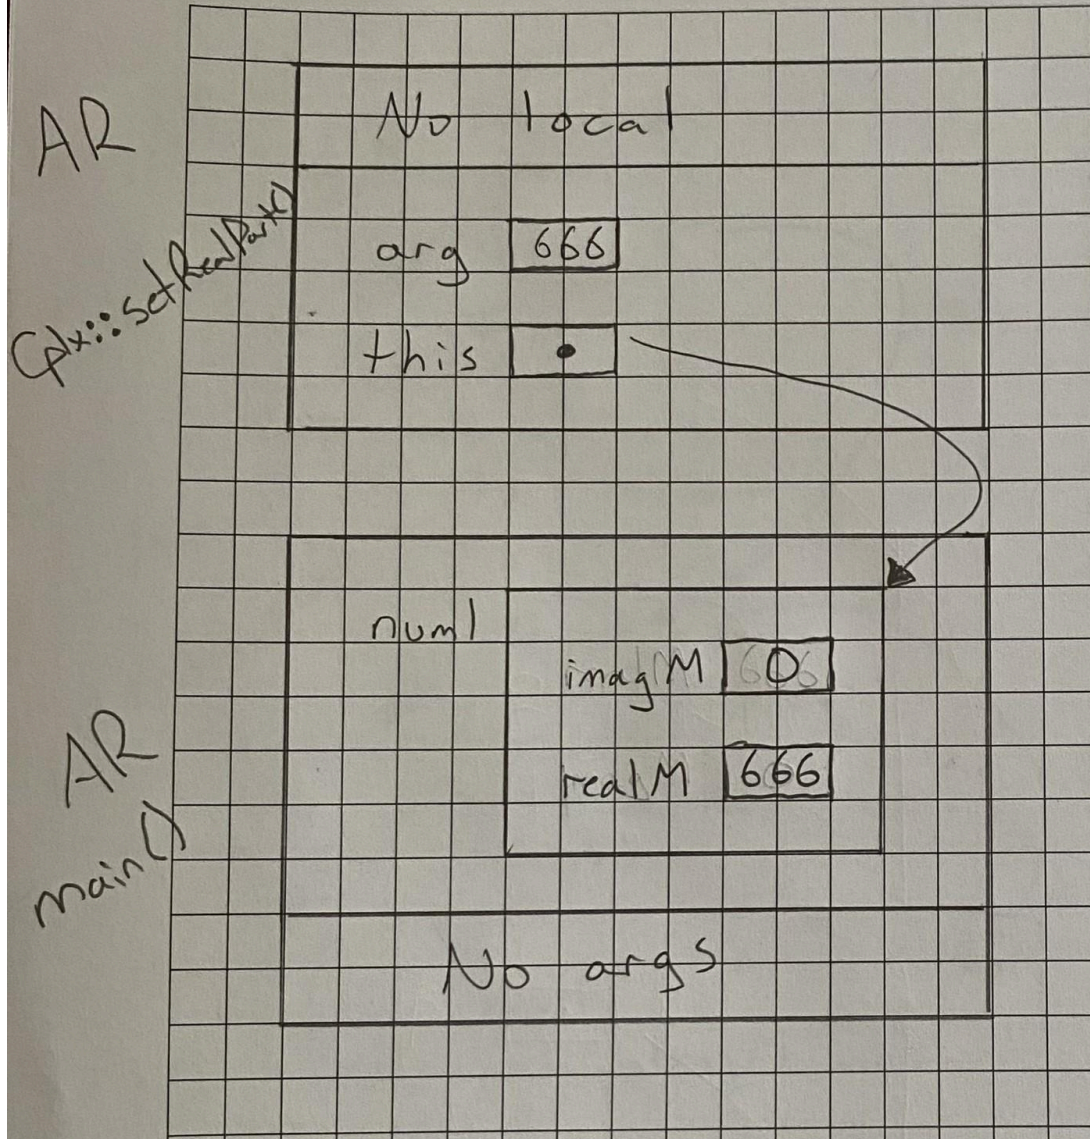 AR
Cplx::setRealPart()
No local
arg 666
this
AR
main()
num1
imagM 0
realM 666
No args